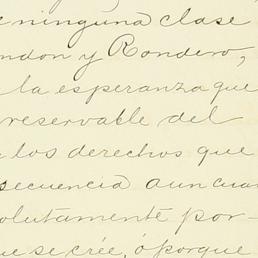 e ninguna clase
ndon y Rondero,
la esperanza que
reservable del
los derechos que
secuencia aun cua
olutamente por-
ue se crée, ó porque